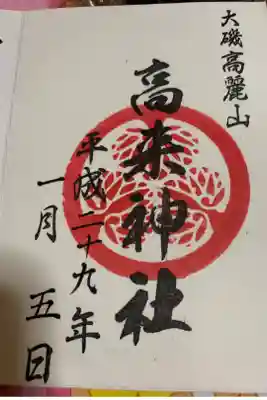 大磯高麗山
高来神社
平成二十九年
一月 五日